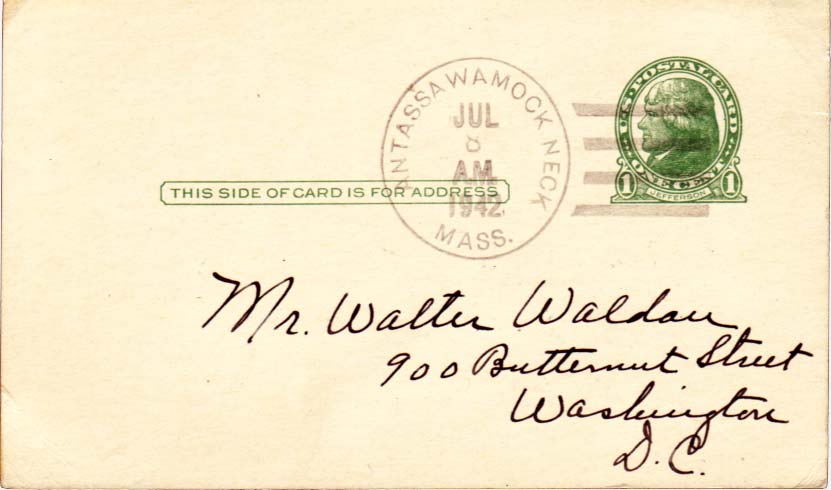 ANTASSAWAMOCK NECK
JUL
8
AM
1942
MASS.
U.S. POSTAL CARD
ONE CENT
1 JEFFERSON 1
THIS SIDE OF CARD IS FOR ADDRESS
Mr. Walter Waldau
900 Butternut Street
Washington
D.C.